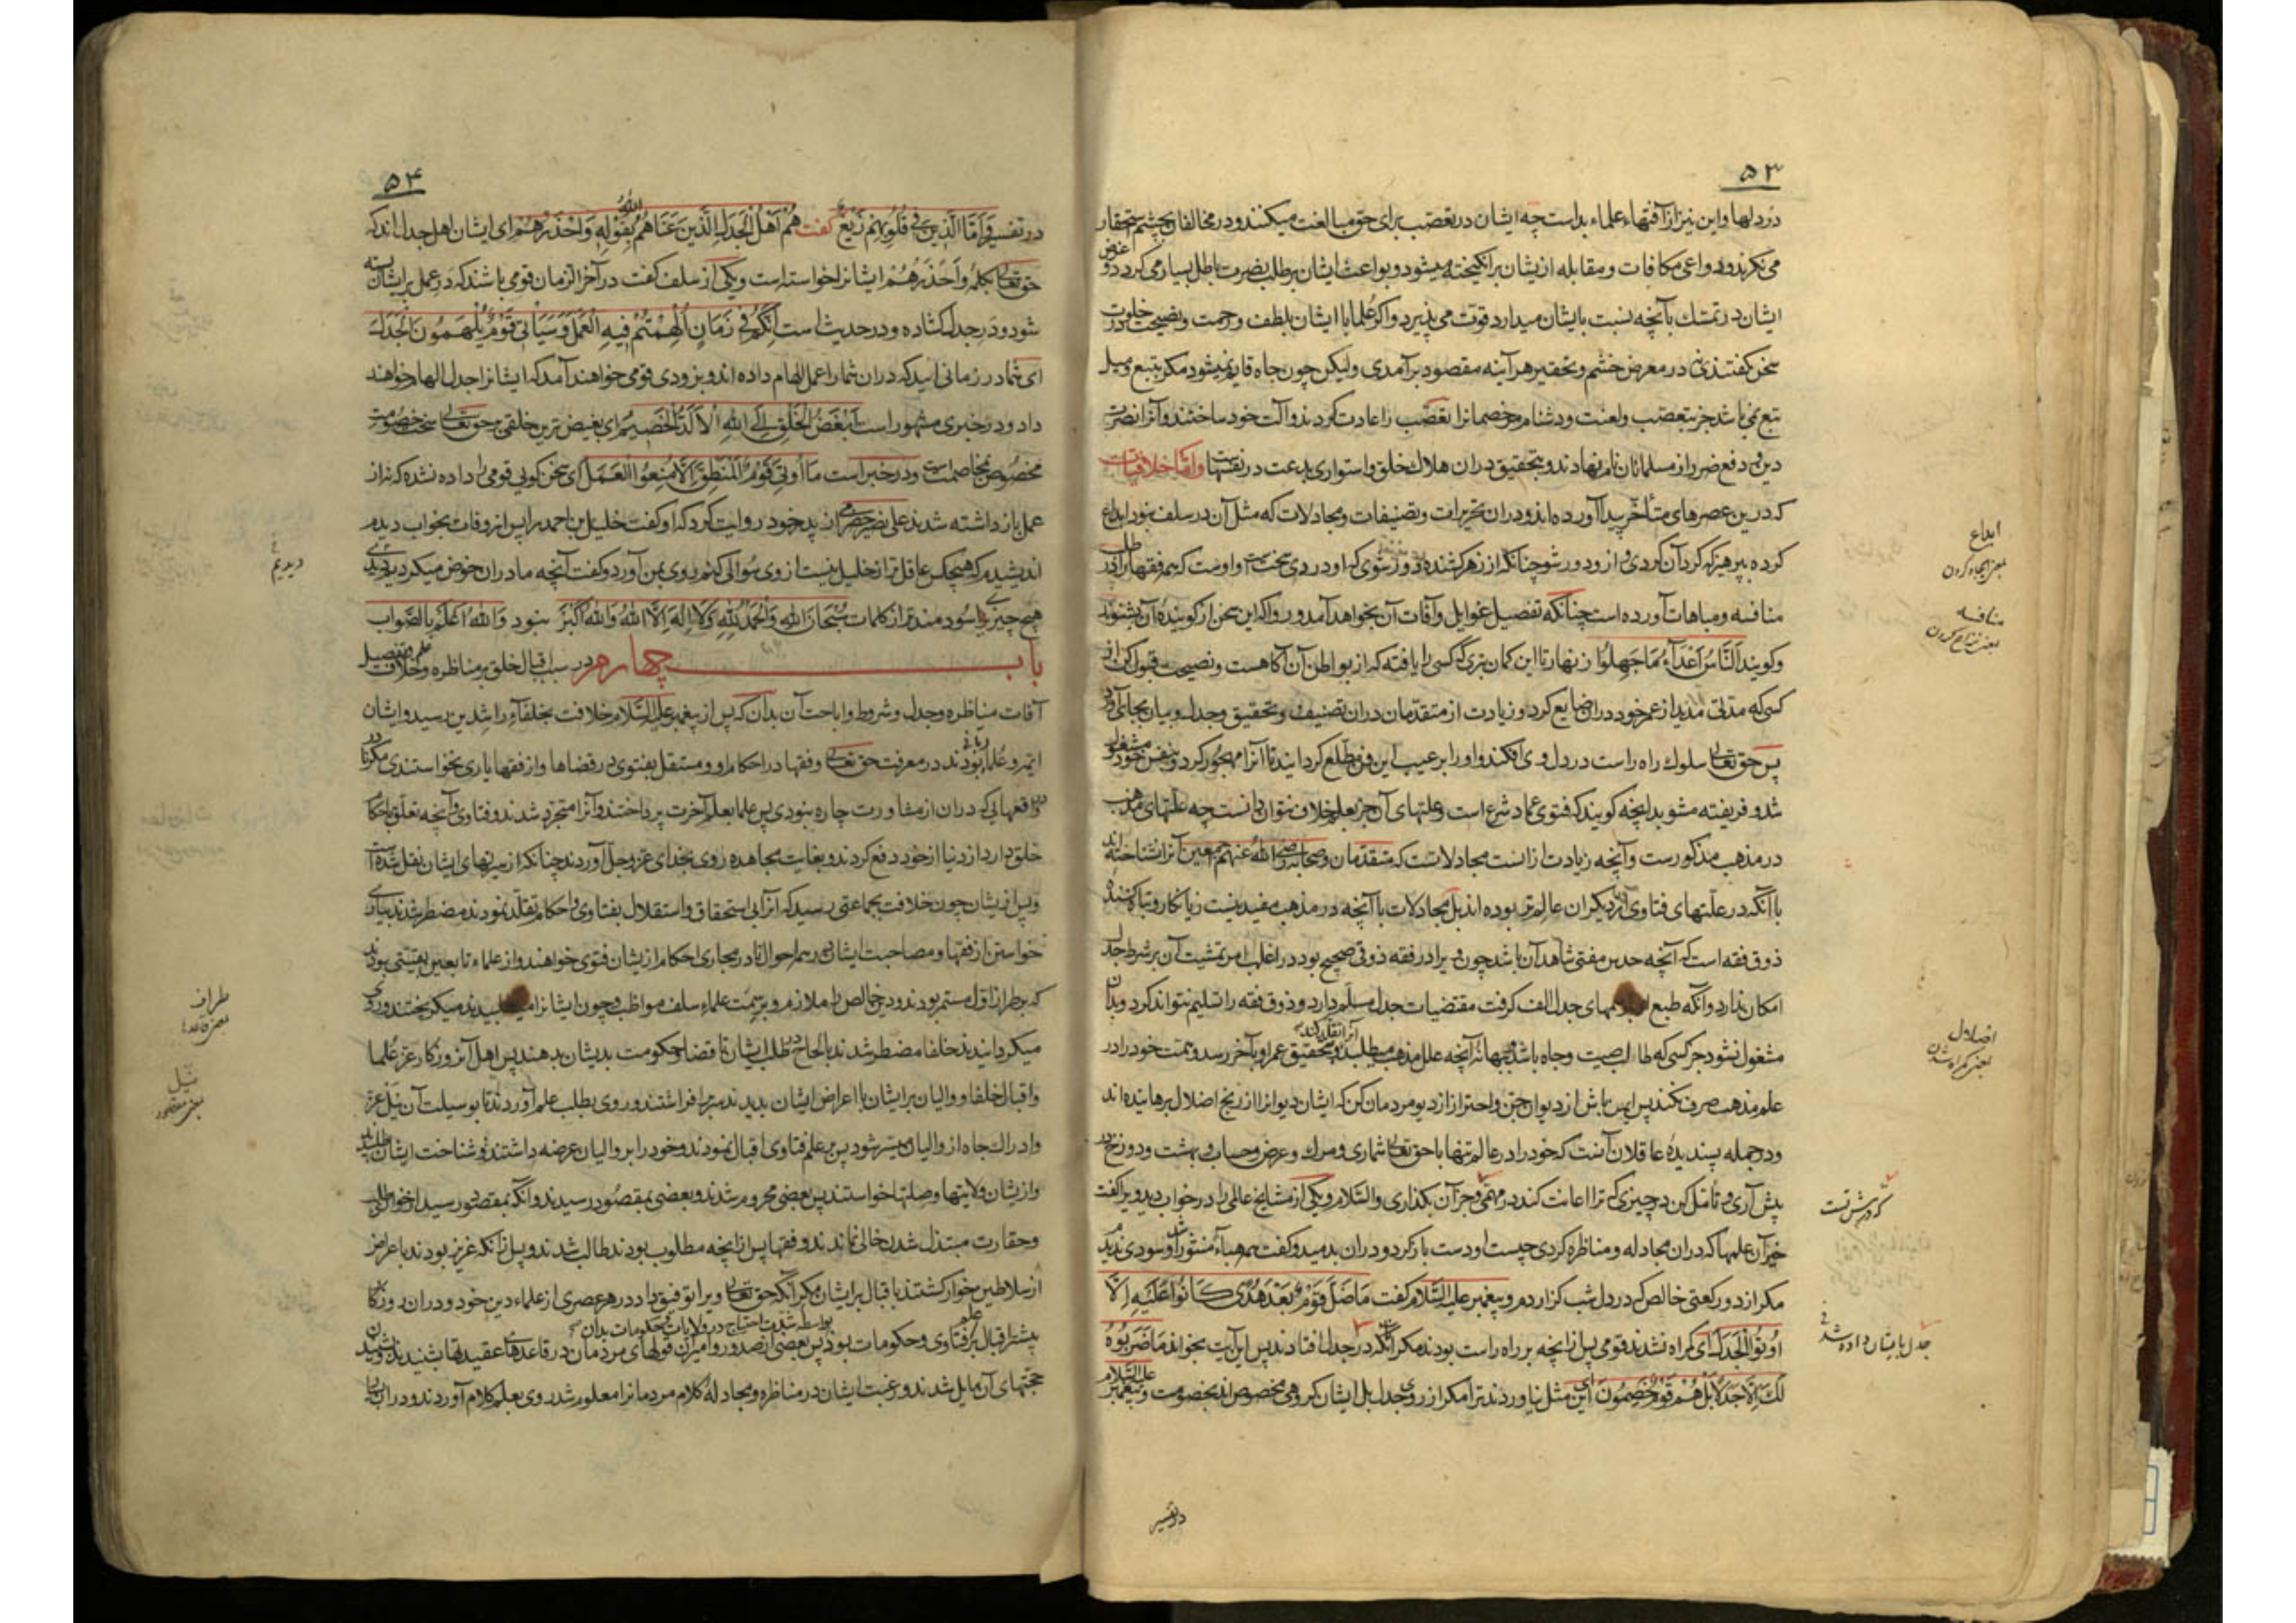 ۵۳
در دلها و این نیز از آفتهاء علماء بداست چه ایشان در تعصب برای حق مبالغت میکنند و در مخالفان بچشم استحقار
می نکرند و دواعی مکافات و مقابله از یشان برانکیخته میشود و بواعث ایشان بر طلب نصرت باطل بسیار می کردد و غرض
ایشان در تمسک بآنچه نسبت بایشان میدارد قوت می پذیرد و اکر علما با ایشان بلطف و رحمت و نصیحت در خلوت
سخن کفتندی نی در معرض خشم و تحقیر هر آینه مقصود بر آمدی ولیکن چون جاه قایم نمیشود مکر بتبع و میل
تبع نمی باشد جز بتعصب و لعنت و دشنام مر خصمانرا تعصب را عادت کردند و آلت خود ساختند و آنرا نصرت
دین و دفع ضرر از مسلمانان نام نهادند و بتحقیق در ان هلاک خلق و استواری بدعت در نفسهاست و اما خلافیات
که درین عصرهای متأخر پیدا آورده اند و دران تحریرات و تصنیفات و مجادلات که مثل آن در سلف نبود ابداع
کرده بپرهیز که کرد آن کردی و از و دور شو چنانکه از زهر کشنده دور شوی که او دردی سخت است و اوست که همه فقها را در طلب
منافسه و مباهات آورده است چنانکه تفصیل غوایل و آفات آن بخواهد آمد و روا که این سخن از کوینده آن بشنوند
و کویند الناس اعداء ما جهلوا زنهار تا این کمان نبری که کسی را یافته که از بواطن آن آکاهست و نصیحت قبول کن از
کسی که مدتی مدید از عمر خود دران ضایع کرد و زیادت از متقدمان دران تصنیف و تحقیق و جدل و بیان بجای آورد
پس حق تعالی سلوک راه راست در دل وی افکند و او را بر عیب این فن مطلع کردانید تا آنرا مهجور کرد و بنفس خود مشغول
شد و فریفته مشو بدانچه کویند که فتوی عماد شرع است و علتهای آن جز بعلم خلاف نتوان دانست چه علتهای مذهب
در مذهب مذکورست و آنچه زیادت ازانست مجادلاتست که متقدمان و صحابه رضی الله عنهم اجمعین آنرا نشناخته اند
با آنکه در علتهای فتاوی از دیکران عالم تر بوده اند بل مجادلات با آنچه در مذهب مفید نیست زیانکار و تباه کننده
ذوق فقه است که آنچه حدس مفتی شاهد آن باشد چون ویرا در فقه ذوقی صحیح بود در اغلب امر تمشیت آن بر شرط جدل
امکان ندارد و آنکه طبع او برسمهای جدل الف کرفت مقتضیات جدل مسلم دارد و ذوق فقه را تسلیم نتواند کرد و بدان
مشغول نشود جز کسی که طالب صیت و جاه باشد و بهانه آنچه علل مذهب میطلبد و بتحقیق عمر او بآخر رسد و همت خود را در
آنرا نقل کند
علم مذهب صرف نکند پس ایمن باش از دیوان جن و احتراز از دیو مردمان کن که ایشان دیوانرا از رنج اضلال برهانیده اند
و در جمله پسندیده عاقلان آنست که خود را در عالم تنها با حق تعالی شماری و مرک و عرض و حساب و بهشت و دوزخ در
پیش آری و تأمل کن در چیزی که ترا اعانت کند در مهمی و جز آن بکذاری والسلام و یکی از مشایخ عالمی را در خواب دید ویرا کفت
خبر آن علمها که دران مجادله و مناظره کردی چیست او دست باز کرد و دران بدمید و کفت همه هباء منثورا شد و سودی ندیدم
مکر از دو رکعتی خالص که در دل شب کزاردم و پیغمبر علیه السلام کفت ما ضل قوم بعد هدی کانوا علیه الا
اوتوا الجدل ای کمراه نشدند قومی پس از انچه بر راه راست بودند مکر آنکه در جدل افتادند پس این آیت بخواند ما ضربوه
لک الا جدلا بل هم قوم خصمون ای این مثل نیاوردند ترا مکر از روی جدل بل ایشان کروهی مخصوص اند بخصومت و پیغمبر علیه السلام
در تفسیر
ابداع
بمعنی ایجاد کردن
منافسه
بمعنی نزاع کردن
اضلال
بمعنی کمراه شدن
که در پیش تست
جدل بایشان داده شد
۵۴
در تفسیر و اما الذین فی قلوبهم زیغ کفت هم اهل الجدل الذین عناهم الله بقوله واحذرهم ای ایشان اهل جدل اند که
حق تعالی بکلمه واحذرهم ایشانرا خواسته است و یکی از سلف کفت در آخر الزمان قومی باشند که در عمل بر ایشان بسته
شود و در جدل کشاده و در حدیث است انکم فی زمان الهمتم فیه العمل و سیاتی قوم یلهمون الجدل
ای شما در زمانی اید که دران شما را عمل الهام داده اند و بزودی قومی خواهند آمد که ایشانرا جدل الهام خواهند
داد و در خبری مشهور است ابغض الخلق الی الله الالد الخصم ای بغیض ترین خلقی بر حق تعالی سخت خصومت
مخصوص بمخاصمت است و در خبر است ما اوتی قوم المنطق الا منعوا العمل ای سخن کویی قومی را داده نشده که نه از
عمل باز داشته شدند علی نصیر حصری از پدر خود روایت کرد که او کفت خلیل بن احمد را پس از وفات بخواب دیدم
اندیشیدم که هیچکس عاقل تر از خلیل نیست از وی سوالی کنم روی بمن آورد و کفت آنچه ما دران خوض میکردیم دیدی
هیچ چیزی سودمند تر از کلمات سبحان الله والحمد لله ولا اله الا الله والله اکبر نبود والله اعلم بالصواب
باب چهارم در سبب اقبال خلق بر مناظره و علم خلاف و تفصیل
آفات مناظره و جدل و شروط و اباحت آن بدان که پس از پیغمبر علیه السلام خلافت بخلفاء راشدین رسید و ایشان
ایمه و علما ربانی بودند در معرفت حق تعالی و فقها در احکام او و مستقل بفتوی در قضاها و از فقها یاری نخواستندی مکر نادر
در واقعهایی که دران از مشاورت چاره نبودی پس علما بعلم آخرت پرداختند و آنرا متجرد شدند و فتاوی و آنچه تعلق باحکام
خلق دارد از دنیا از خود دفع کردند و بغایت مجاهده روی بخدای عز و جل آوردند چنانکه از سیرتهای ایشان نقل شده است
و پس از یشان چون خلافت بجماعتی رسید که آنرا بی استحقاق و استقلال بفتاوی و احکام تقلد نمودند مضطر شدند بیاری
خواستن از فقها و مصاحبت ایشان در همه احوال تا در مجاری احکام از یشان فتوی خواهند و از علماء تابعین بقیتی بودند
که بر طراز اول مستمر بودند و دین خالص را ملازم و بر سمت علماء سلف مواظب و چون ایشانرا میطلبیدند میکریختند و روی
میکردانیدند خلفا مضطر شدند بالحاح در طلب ایشان تا قضا و حکومت بدیشان بدهند پس اهل آن روزکار عز علما
و اقبال خلفا و والیان بر ایشان با اعراض ایشان بدیدند سر بر افراشتند و روی بطلب علم آوردند تا بوسیلت آن نیل عز
و ادراک جاه از والیان میسر شود پس بر علم فتاوی اقبال نمودند و خود را بر والیان عرضه داشتند و شناخت ایشان طلبیدند
و از یشان ولایتها و صلتها خواستند پس بعضی محروم شدند و بعضی بمقصود رسیدند و آنکه بمقصود رسید از خواری طلب
و حقارت مبتذل شدن خالی نماندند و فقها پس از انچه مطلوب بودند طالب شدند و پس از انکه عزیز بودند باعراض
از سلاطین خوار کشتند باقبال بر ایشان مکر آنکه حق تعالی ویرا توفیق داد در هر عصری از علماء دین خود و دران روزکار
بواسطه شدت احتیاج در ولایات و حکومات بدان
بیشتر اقبال بر علم فتاوی و حکومات بود پس بعضی از صدور و امیران قولهای مردمان در قاعدهای عقیدتها بشنیدند و بشنیدن
حجتهای آن مایل شدند و رغبت ایشان در مناظره و مجادله کلام مردمانرا معلوم شد روی بعلم کلام آوردند و دران باب
دیدیم
طراز
بمعنی قاعده
نیل
بمعنی مقصود